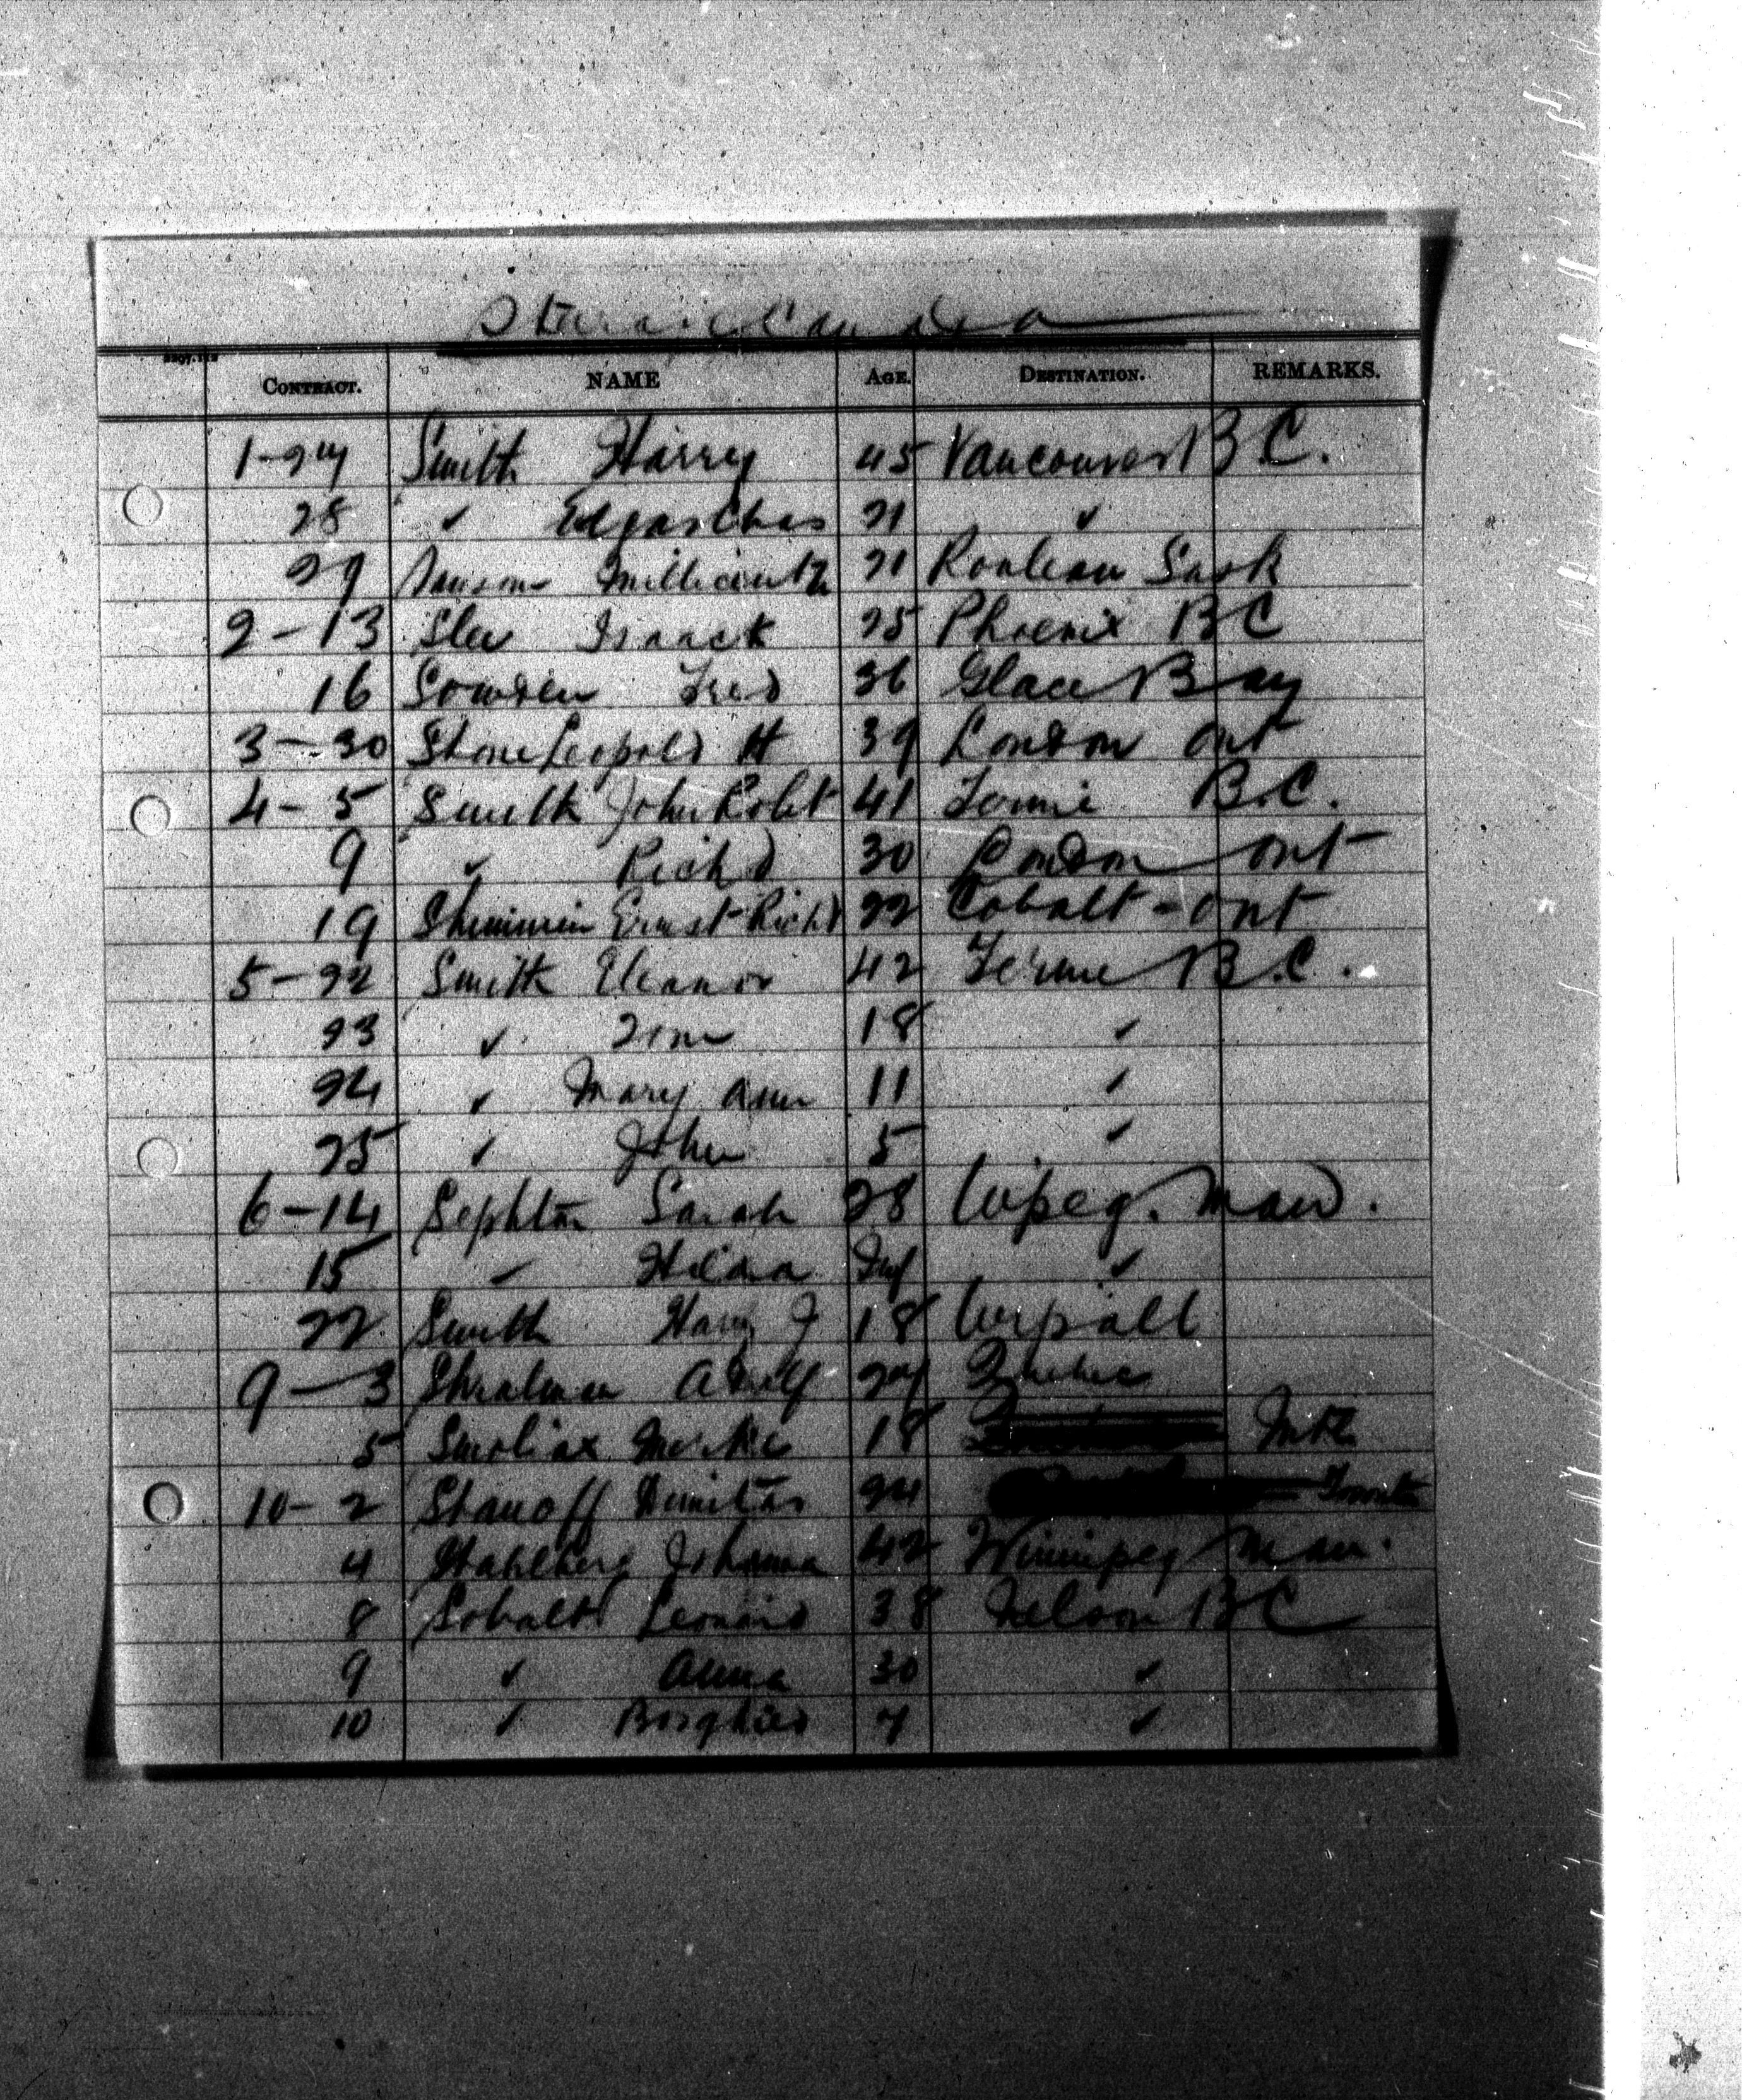 CONTRACT. NAME AGE. DESTINATION. REMARKS.
1-27 Smith Harry 45 Vancouver B.C.
28 ✓ Edgar Chas 21 ✓
29 Millicent 21 Rouleau Sask
2-13 Slee Isaack 25 Phoenix BC
16 Sowden Fred 36 Glace Bay
3-30 Stone Leopold H 39 London Ont
4-5 Smith John Robt 41 Fernie B.C.
9 ✓ Richd 30 London Ont
19 Shimmin Ernest Richd 22 Cobalt - Ont
5-22 Smith Eleanor 42 Fernie B.C.
23 ✓ 18 ✓
24 ✓ Mary Ann 11 ✓
25 ✓ John 5 ✓
6-14 Sephton Sarah 28 Wpeg. Man.
15 ✓ Hilda Inf ✓
22 Smith Harry J 18
9-3 Adolf 27 Quebec
5 18 Mtl
10-2 Stanoff Dimitar 24 Toronto
4 Stahlberg Johanna 42 Winnipeg Man.
8 Leonard 38 Nelson BC
9 ✓ Anna 30 ✓
10 ✓ 7 ✓